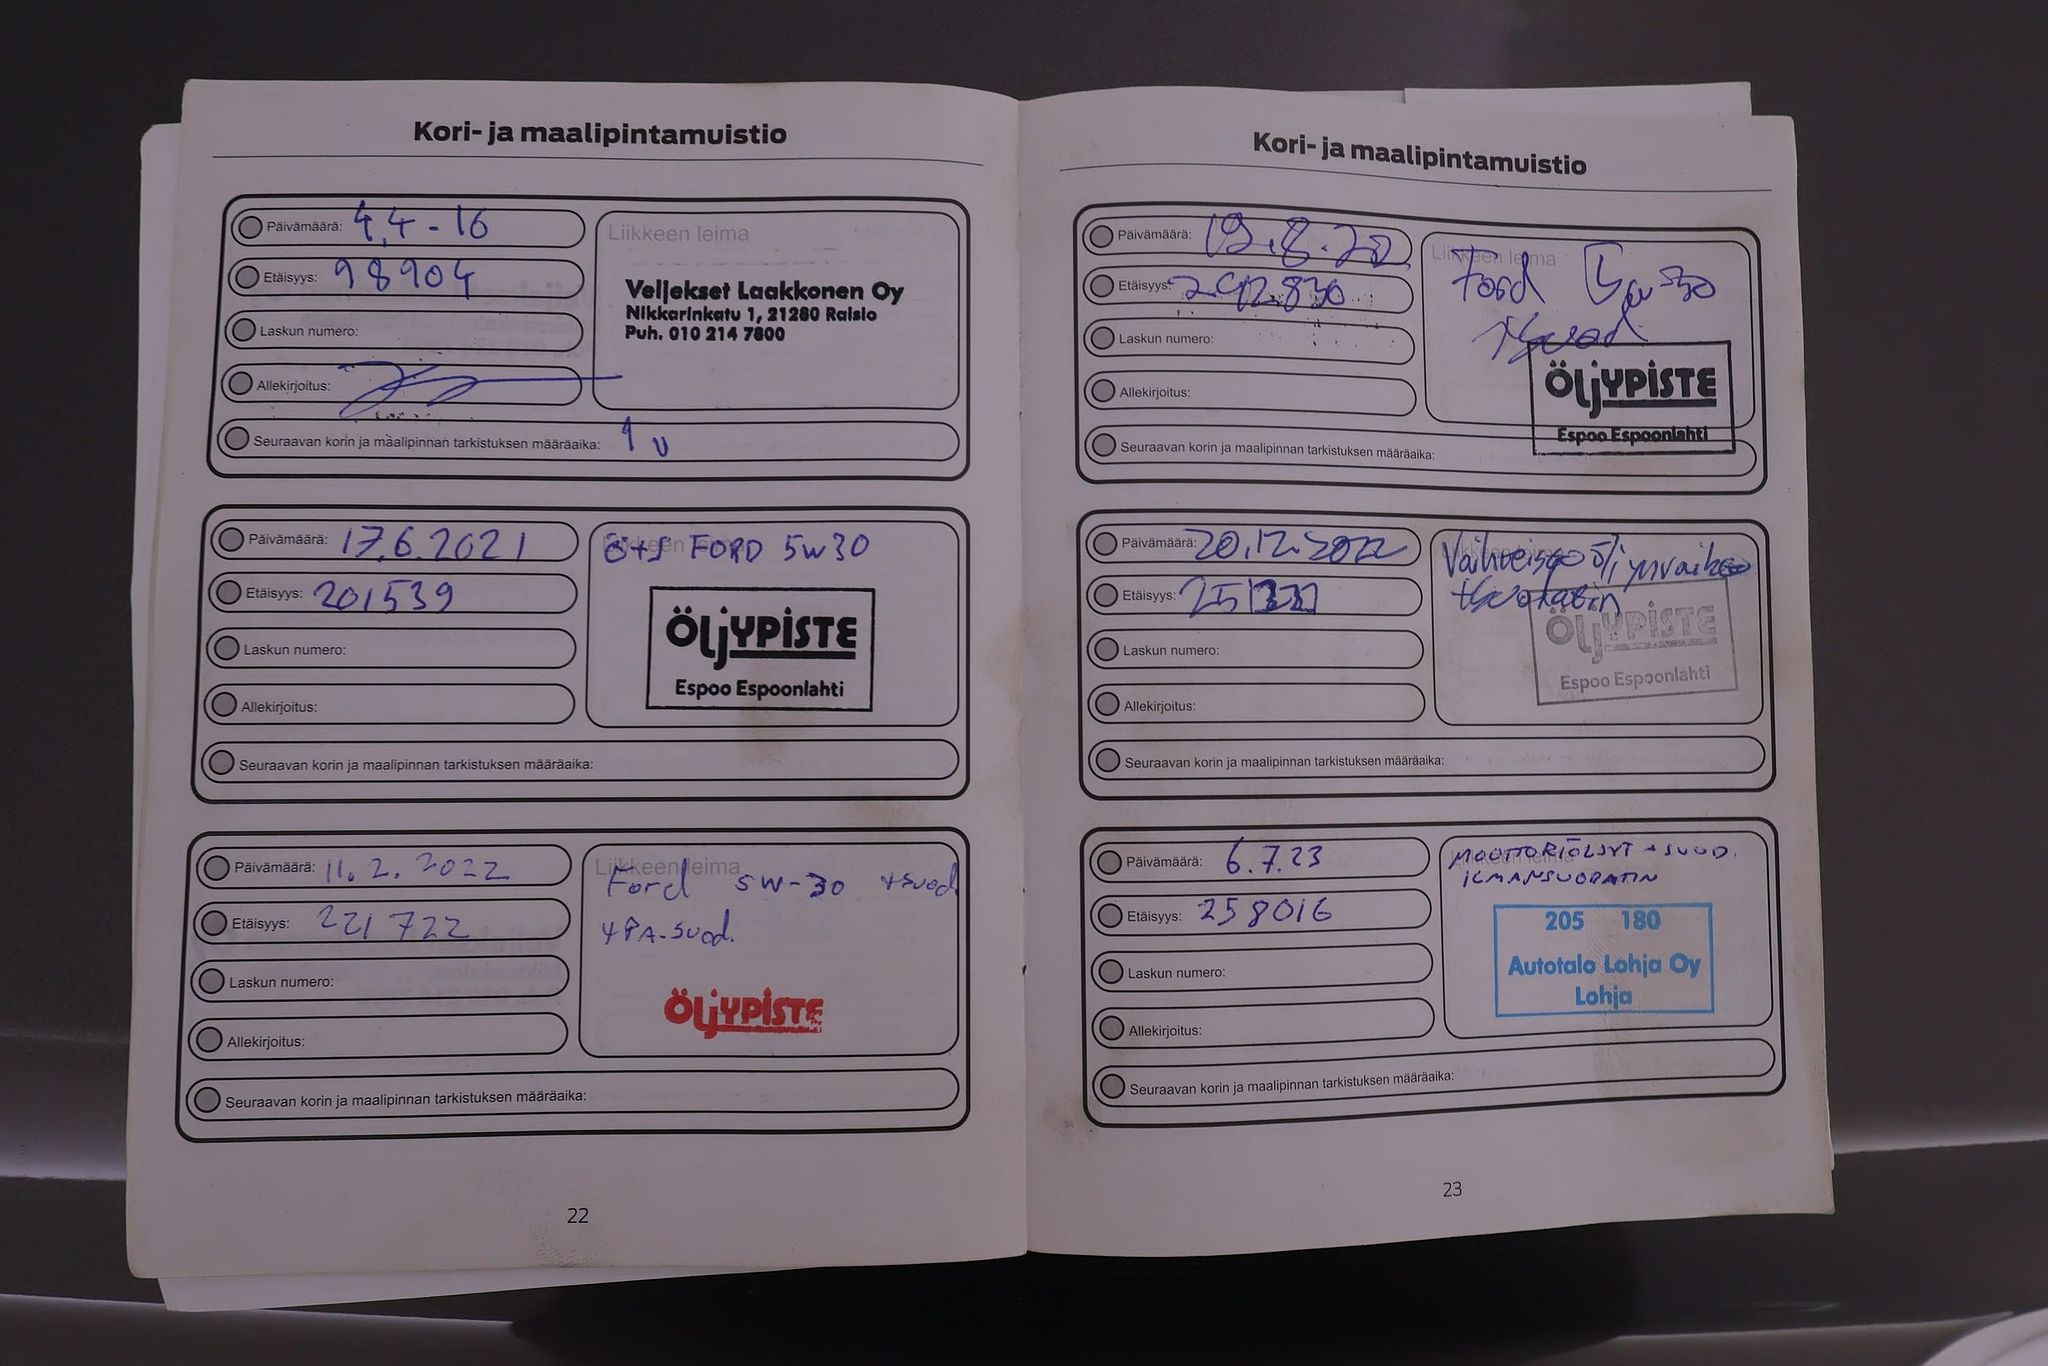 Kori- ja maalipintamuistio
Päivämäärä: 4.4-16
Etäisyys: 98904
Laskun numero:
Allekirjoitus:
Liikkeen leima
Veljekset Laakkonen Oy
Nikkarinkatu 1, 21280 Raisio
Puh. 010 214 7800
Seuraavan korin ja maalipinnan tarkistuksen määräaika: 1 v
Päivämäärä: 17.6.2021
Etäisyys: 201539
Laskun numero:
Allekirjoitus:
Liikkeen leima
Ö+S FORD 5W30
ÖLjYPiSTE
Espoo Espoonlahti
Seuraavan korin ja maalipinnan tarkistuksen määräaika:
Päivämäärä: 11.2.2022
Etäisyys: 221722
Laskun numero:
Allekirjoitus:
Liikkeen leima
Ford 5W-30 +suod
+PA-suod.
ÖLjYPiSTE
Seuraavan korin ja maalipinnan tarkistuksen määräaika:
22
Kori- ja maalipintamuistio
Päivämäärä: 19.8.22
Etäisyys: 242.830
Laskun numero:
Allekirjoitus:
Liikkeen leima
Ford 5w-30
+suod
ÖLjYPiSTE
Espoo Espoonlahti
Seuraavan korin ja maalipinnan tarkistuksen määräaika:
Päivämäärä: 20.12.2022
Etäisyys:
Laskun numero:
Allekirjoitus:
Liikkeen leima
Vaihteisto öljynvaihto
+suodatin
ÖLjYPiSTE
Espoo Espoonlahti
Seuraavan korin ja maalipinnan tarkistuksen määräaika:
Päivämäärä: 6.7.23
Etäisyys: 258016
Laskun numero:
Allekirjoitus:
Liikkeen leima
MOOTTORIÖLJYT + SUOD.
ILMANSUODATIN
205 180
Autotalo Lohja Oy
Lohja
Seuraavan korin ja maalipinnan tarkistuksen määräaika:
23